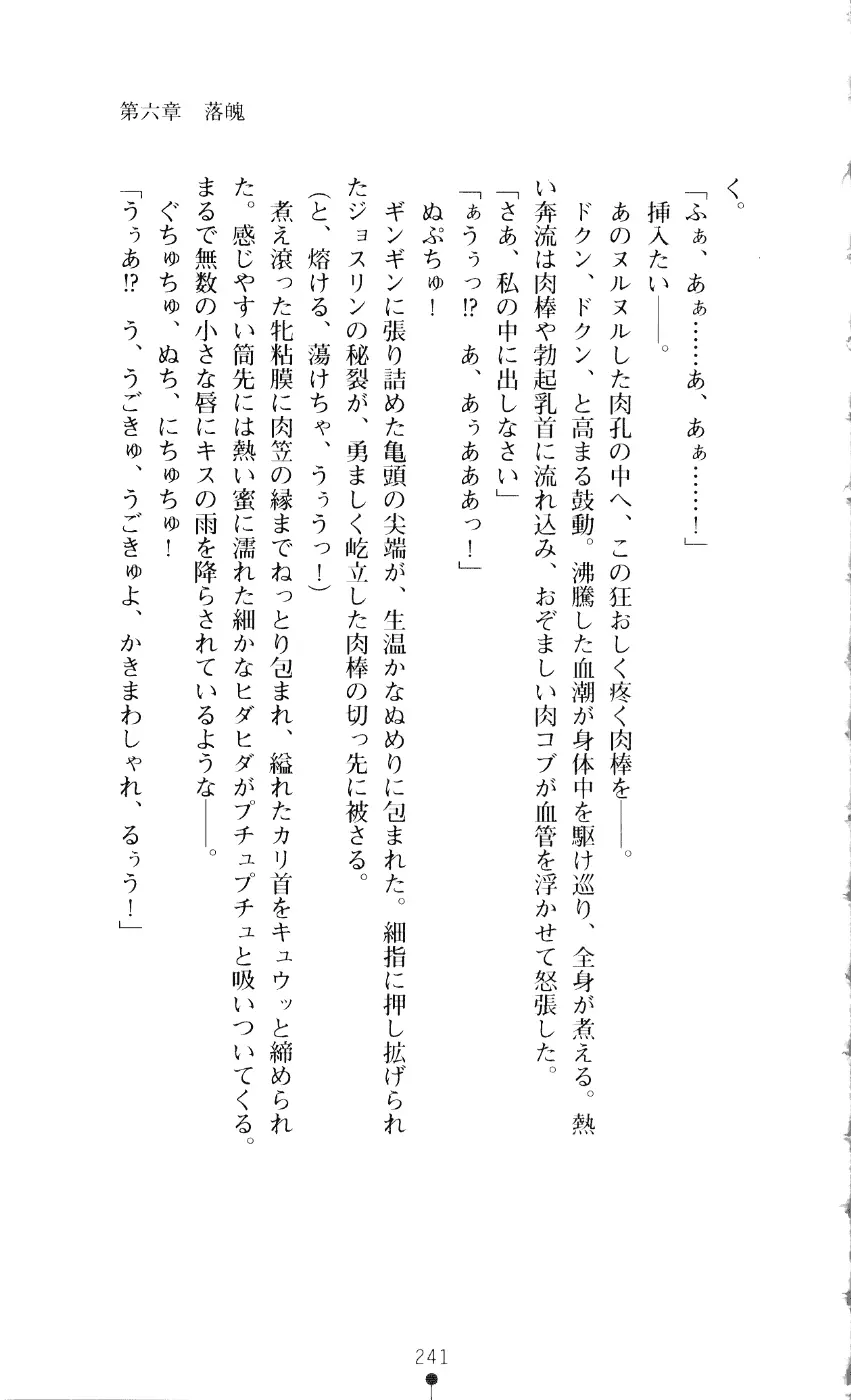 第六章　落魄
く。
「ふぁ、あぁ……あ、あぁ……！」
挿入たい――。
あのヌルヌルした肉孔の中へ、この狂おしく疼く肉棒を――。
ドクン、ドクン、と高まる鼓動。沸騰した血潮が身体中を駆け巡り、全身が煮える。熱
い奔流は肉棒や勃起乳首に流れ込み、おぞましい肉コブが血管を浮かせて怒張した。
「さあ、私の中に出しなさい」
「ぁうぅっ⁉　あ、あぅあああっ！」
ぬぷちゅ！
ギンギンに張り詰めた亀頭の尖端が、生温かなぬめりに包まれた。細指に押し拡げられ
たジョスリンの秘裂が、勇ましく屹立した肉棒の切っ先に被さる。
（と、熔ける、蕩けちゃ、うぅうっ！）
煮え滾った牝粘膜に肉笠の縁までねっとり包まれ、縊れたカリ首をキュウッと締められ
た。感じやすい筒先には熱い蜜に濡れた細かなヒダヒダがプチュプチュと吸いついてくる。
まるで無数の小さな唇にキスの雨を降らされているような――。
ぐちゅちゅ、ぬち、にちゅちゅ！
「うぅあ⁉　う、うごきゅ、うごきゅよ、かきまわしゃれ、るぅう！」
241